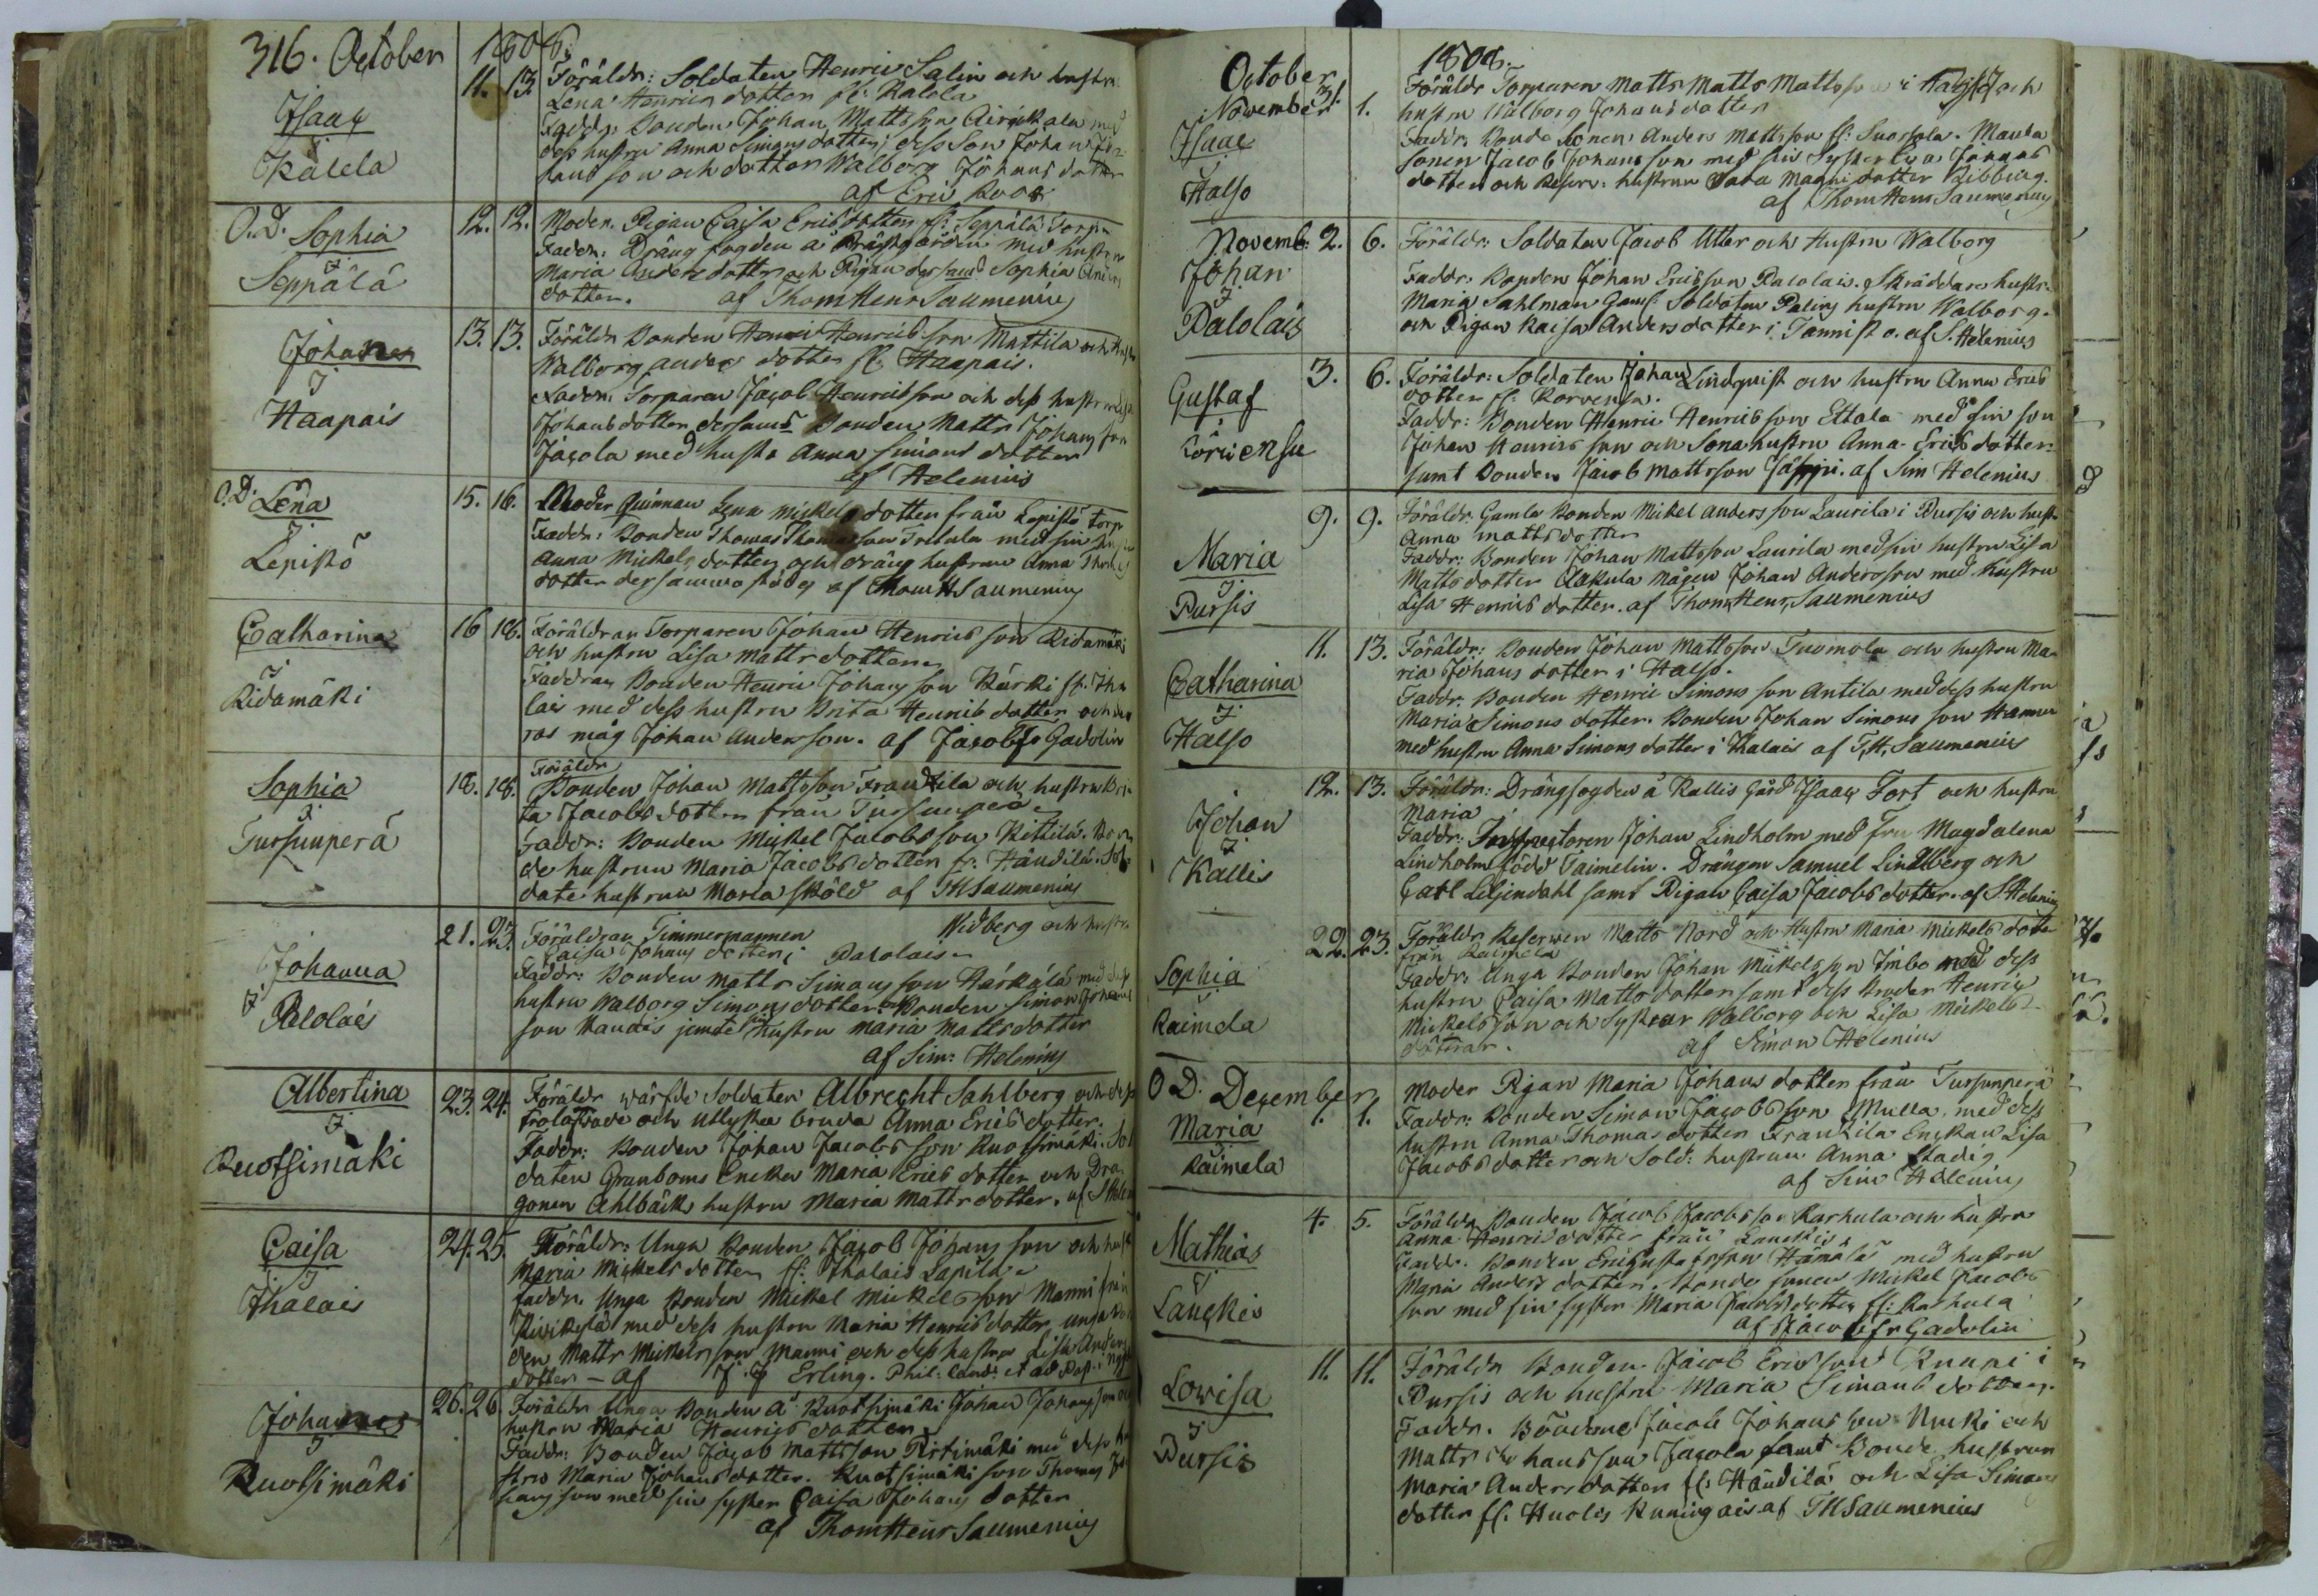 316. October 1808.
Isaac
i
Kälelä
11. 13. Föräldr: Soldaten Henric Salin och hustru
Lena Henrics dotter fr: Kalola
Faddr: Bonden Johan Mattsson Airikala med
dess hustru Anna Simonsdotter, dess Son Johan Jo-
hans son och dotter Walborg Johans dotter
af Eric Roos
O.Ä. Sophia
i
Seppälä
12. 12. Moder. Pigan Caisa Ericsdotter fr: Seppälä Torp
Faddr: Dräng fogden å Prästgården med hustru
Maria Anders dotter och Pigan dersam̄d Sophia Anders
dotter. af Thom Henr Saumenius
Johannes
i
Haapais
13. 13. Föräldr Bonden Henric Henricsson Mattila och hustr
Walborg anders dotter fr Haapais.
Faddr: Torparen Jacob Henricsson och dess hustru
Johansdotter dersam̄d Bonden Matts Johans son
Jacola med hustr Anna Simons dotter
af Helenius
O.Ä. Lena
i
Lepistö
15. 16. Moder Quinnan Lena Mickels dotter från Lepistö torp
Faddr: Bonden Thomas Thomasson med sin
Anna Mickels dotter och dräng hustrun Anna Thomas
dotter dersammastädes af Thom H Saumenius
Catharina
i
Ridamäki
16 18. Föräldrar Torparen Johan Henrics son Ridamäki
och hustru Lisa Matts dotter
Faddrar Bonden Henric Johans son Kärki fr. Tha
lais med dess hustru Brita Henrics dotter och
ras måg Johan Andersson. af Jacob Fr Gadolin
Sophia
i
Tursunperä
18. 18. Föräldr
Bonden Johan Mattsson Franttila och hustru Bri-
ta Jacobsdotter från Tursunperä
Faddr: Bonden Mickel Jacobsson Kittilä. Bon
de hustrun Maria Jacobsdotter fr. Händilä. Sol-
date hustrun Maria Sköld af TH Saumenius
Johanna
i
Palolais
21. 23. Föräldrar Timmermannen Widberg och hustru
Caisa Johans dotter i Palolais
Faddr: Bonden Matts Simons son Härkälä med dess
hustru Walborg Simons dotter. Bonden Simon Johans
son jemte sin hustru Maria Mattsdotter
af Sim: Helenius
Albertina
i
Ruotsimäki
23. 24. Föräldr wärfde Soldaten Albrecht Sahlberg och dess
trolofwade och utlysta bruda Anna Ericsdotter.
Faddr: Bonden Johan Jacobs son Ruotsimäki. Sol
daten Granboms Encka Maria Erics dotter och Dra
gonen Ahlbäcks hustru Maria Matts dotter. af S Helen
Caisa
i
Thalais
24. 25. Föräldr: Unga Bonden Jacob Johans son och hust
Maria Mickels dotter fr: Thalais Lapila
Faddr. Unga Bonden Mickel Mickelsson Manni från
Kiwikylä med dess hustru Maria Henrics dotter, unga Bon
den Matts Mickelsson Manni och dess hustru Lisa Anders
dotter – af J. J Erling. Phil: Cand:
Johannes
i
Ruotsimäki
26. 26. Föräldr Unga Bonden å Ruotsimäki Johan Johansson och
hustru Maria Henrics dotter
Faddr: Bonden Jacob Mattsson Ristimäki med dess hu
stru Maria Johansdotter. Ruotsimäki son Thomas Jo
hans son med sin syster Caisa Johans dotter
af Thom Henr Saumenius
October 1808.
November
Isaac
i
Halso
31. 1. Föräldr Torparen Matts Matts Mattsson i och
hustru Walborg Johansdotter
Faddr. Bonde sonen Anders Mattsson fr: Suorsola.
sonen Jacob Johansson med sin Syster Johans
dotter och Reserv: hustrun Sara Magnidotter Ribbing.
af Thom Henr Saumenius
Novemb: 2. 6. Föräldr: Soldaten Jacob Utter och Hustru Walborg
Johan
i
Palolais
Faddr. Bonden Johan Ericsson Palolais. Skräddare hustr.
Maria Sahlman Soldaten Palins hustru Walborg.
och Pigan Kaisa Andersdotter i Tannisto. af S. Helenius
Gustaf
i
Korwensu
3. 6. Föräldr: Soldaten Johan Lindqvist och hustru Anna Erics
dotter fr: Korvensu.
Faddr: Bonden Henric Henricsson Ettala med sin son
Johan Henrics son och Sonahustru Anna Erics dotter
samt Bonden Jacob Mattsson af Sim Helenius
Maria
i
Pursis
9. 9. Föräldr: Gamla Bonden Mickel Andersson Laurila i Pursis och hust
Anna Mattsdotter
Faddr: Bonden Johan Mattsson Laurila med sin hustru Lisa
Mattsdotter Clakula mågen Johan Andersson med hustru
Lisa Henrics dotter. af Thom Henr Saumenius
Catharina
i
Halso
11. 13. Föräldr: Bonden Johan Mattsson Tuomola och hustru Ma-
ria Johans dotter i Halso.
Faddr. Bonden Henric Simons son Antila med dess hustru
Maria Simons dotter. Bonden Johan Simons son Hannu
med hustru Anna Simons dotter i Thalais af T,H, Saumenius
Johan
i
Kallis
12. 13. Föräldr: Drängfogden å Kallis Gård Isaac Fort och hustru
Maria
Faddr: Inspectoren Johan Lindholm med Fru Magdalena
Lindholm född Taimelin. Drängen Samuel Lindberg och
Carl Liljendahl samt Pigan Caisa Jacobsdotter. af S. Helenius
Sophia
Raimela
22. 23. Föräldr Reserven Matts Nord och Hustru Maria Mickels dotter
från Raimela
Faddr: Unga Bonden Johan Mickelsson Imbo med dess
hustru Caisa Mattsdotter samt dess Broder Henric
Mickelsson och Systrar Walborg och Lisa Mickels-
döttrar. af Simon Helenius
O.Ä. December
Maria
Raimela
1. 1. Moder Pigan Maria Johans dotter från Tursunperä
Faddr: Bonden Simon Jacobsson Mulla. med dess
hustru Anna Thomas dotter Frantila Enckan Lisa
Jacobs dotter och Sold: hustrun Anna Stadig
af Sim Helenius
Mathias
i
Lauckis
4. 5. Föräldr Bonden Jacob Jacobsson Karhula och hustru
Anna Henrics dotter från Lauckis.
Faddr. Bonden Eric Gustafsson Hämälä med hustru
Maria Anders dotter. Bonde sonen Mickel Jacobs
son med sin syster Maria Jacobsdotter fr: Karhula
af Jacob Fr Gadolin
Lovisa
i
Pursis
11. 11. Föräldr Bonden Jacob Ericsson Knapi i
Pursis och hustru Maria Simons dotter.
Faddr. Bönderne Jacob Johansson Nucki och
Matts Johansson Jacola samt Bonde hustrun
Maria Anders dotter fr: Händilä och Lisa Simons
dotter fr. Huolis Kuningais af TH Saumenius